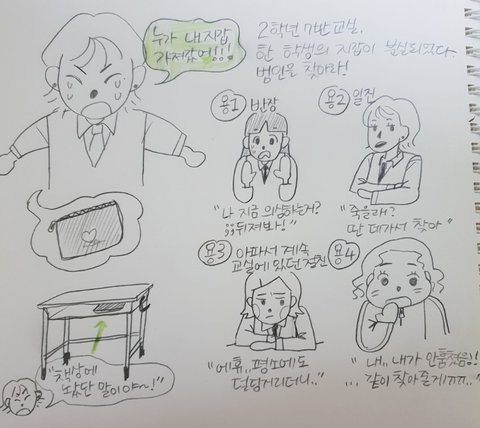 누가 내 지갑
가져갔어!!!
2학년 7반 교실,
한 학생의 지갑이 분실되었다.
범인을 찾아라!
용1 반장
용2 일진
"나 지금 의심하는거?
뒤져봐!"
"죽을래?
딴 데가서 찾아"
용3 아파서 계속
교실에 있던 절친
용4
"에휴.. 평소에도
덜덩거리더니.."
"내.. 내가 안훔쳤음!!
...같이 찾아줄게ㄲㄲ.."
"책상에
놨단 말이야~!"